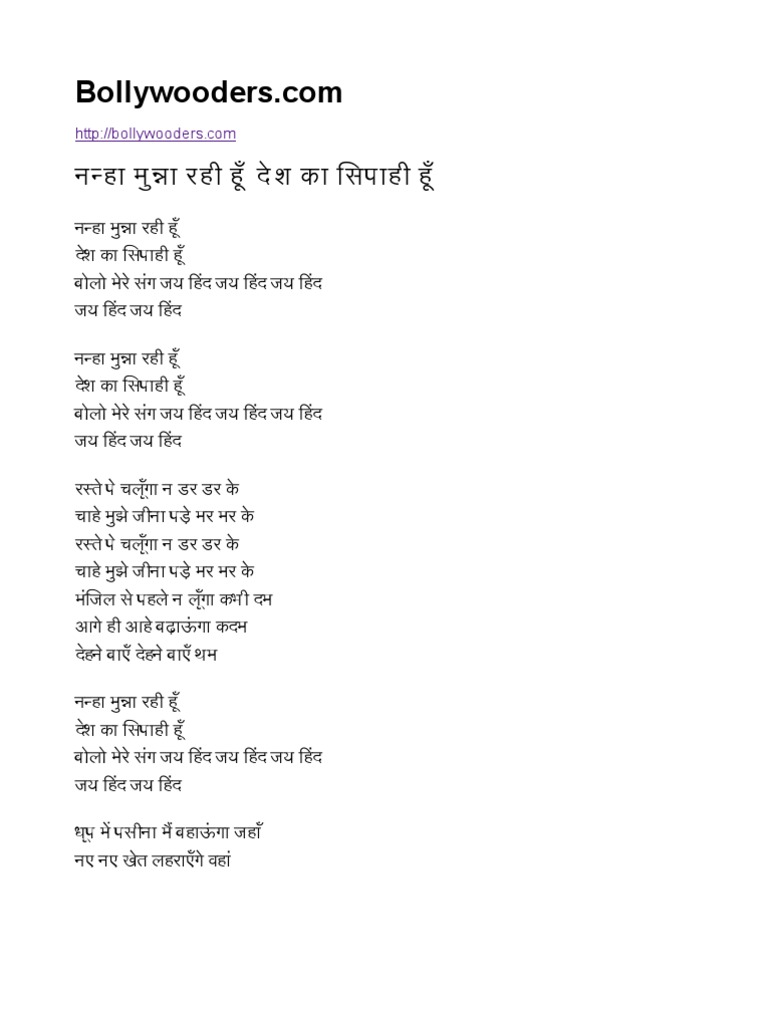 Bollywooders.com
http://bollywooders.com
नन्हा मुन्ना रही हूँ देश का सिपाही हूँ
नन्हा मुन्ना रही हूँ
देश का सिपाही हूँ
बोलो मेरे संग जय हिंद जय हिंद जय हिंद
जय हिंद जय हिंद
नन्हा मुन्ना रही हूँ
देश का सिपाही हूँ
बोलो मेरे संग जय हिंद जय हिंद जय हिंद
जय हिंद जय हिंद
रस्ते पे चलूँगा न डर डर के
चाहे मुझे जीना पड़े मर मर के
रस्ते पे चलूँगा न डर डर के
चाहे मुझे जीना पड़े मर मर के
मंजिल से पहले न लूँगा कभी दम
आगे ही आहे बढ़ाऊंगा कदम
देहने बाएँ देहने बाएँ थम
नन्हा मुन्ना रही हूँ
देश का सिपाही हूँ
बोलो मेरे संग जय हिंद जय हिंद जय हिंद
जय हिंद जय हिंद
धूप में पसीना मैं बहाऊंगा जहाँ
नए नए खेत लहराएँगे वहां